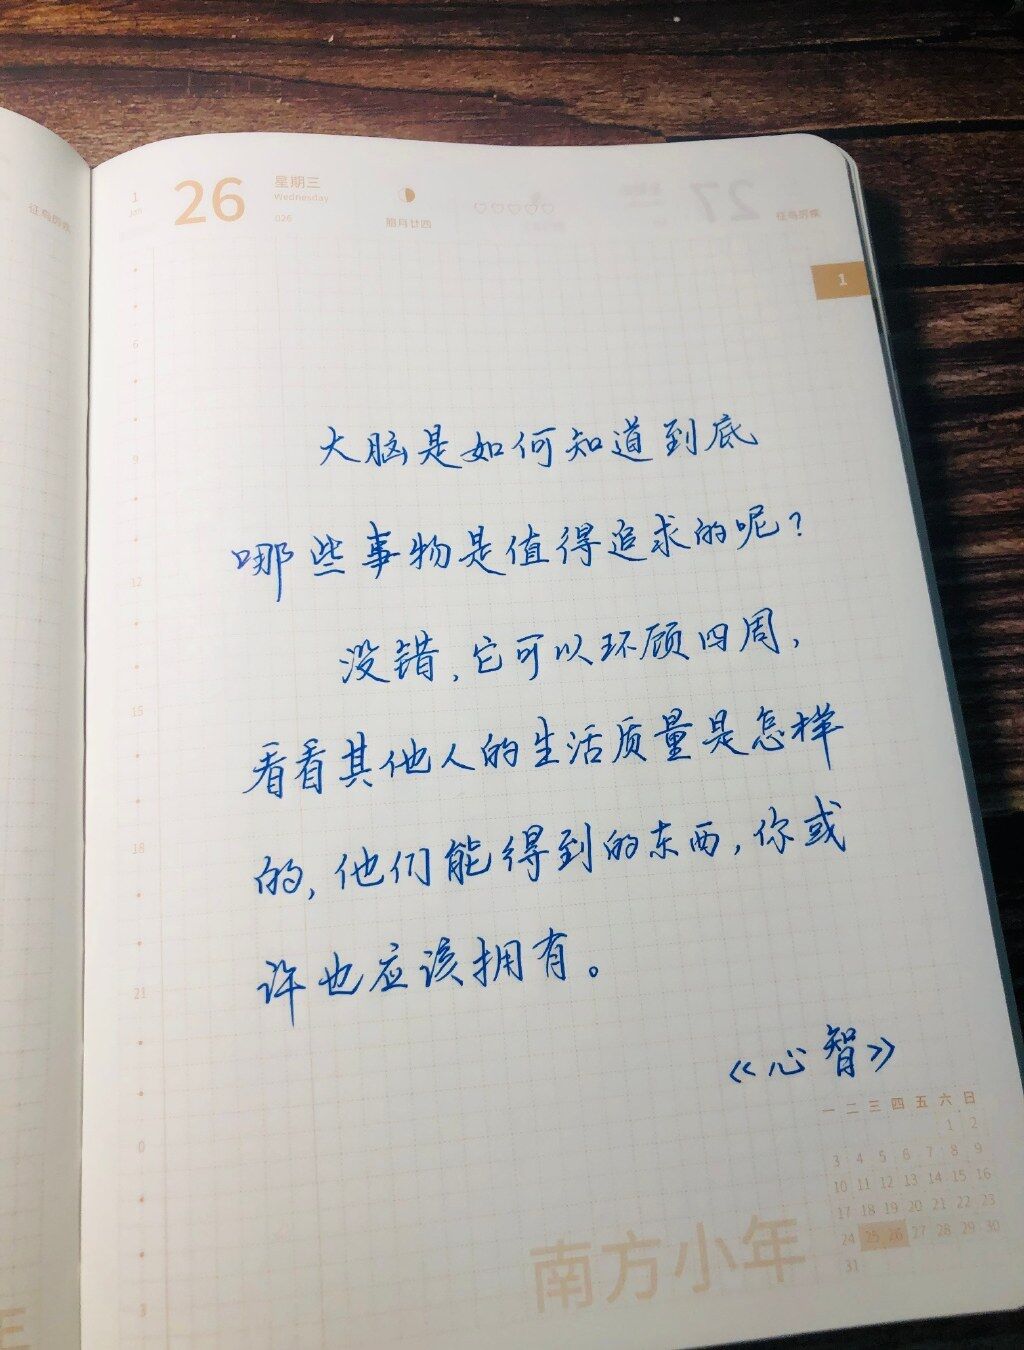 1
Jan
26
星期三
Wednesday
026
腊月廿四
27
征鸟厉疾
征鸟厉疾
1
6
9
12
15
18
21
0
3
大脑是如何知道到底
哪些事物是值得追求的呢?
没错,它可以环顾四周,
看看其他人的生活质量是怎样
的,他们能得到的东西,你或
许也应该拥有。
《心智》
一 二 三 四 五 六 日
1 2
3 4 5 6 7 8 9
10 11 12 13 14 15 16
17 18 19 20 21 22 23
24 25 26 27 28 29 30
31
南方小年
年